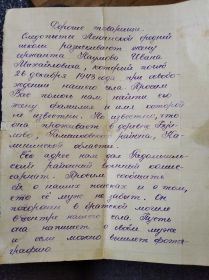 Дорогие товарищи.
Следопыты Ленинской средней
школы разыскивают жену
сержанта Наумова Ивана
Михайловича, который погиб
26 декабря 1943 при освобо-
ждении нашего села. Просим
Вас помочь нам найти его
жену фамилия и имя которой
не известны. Но известно, что
она проживает в деревне
района, Ка-
лининской области.
Её адрес нам дал Радомышль-
ский районный военный комис-
сариат. Просим сообщить
ей о наших поисках и о том,
что её муж не забыт. Он
похоронен в братской могиле
в центре нашего села. Пусть
она напишет о своём муже
и если можно вышлет фото-
графию.